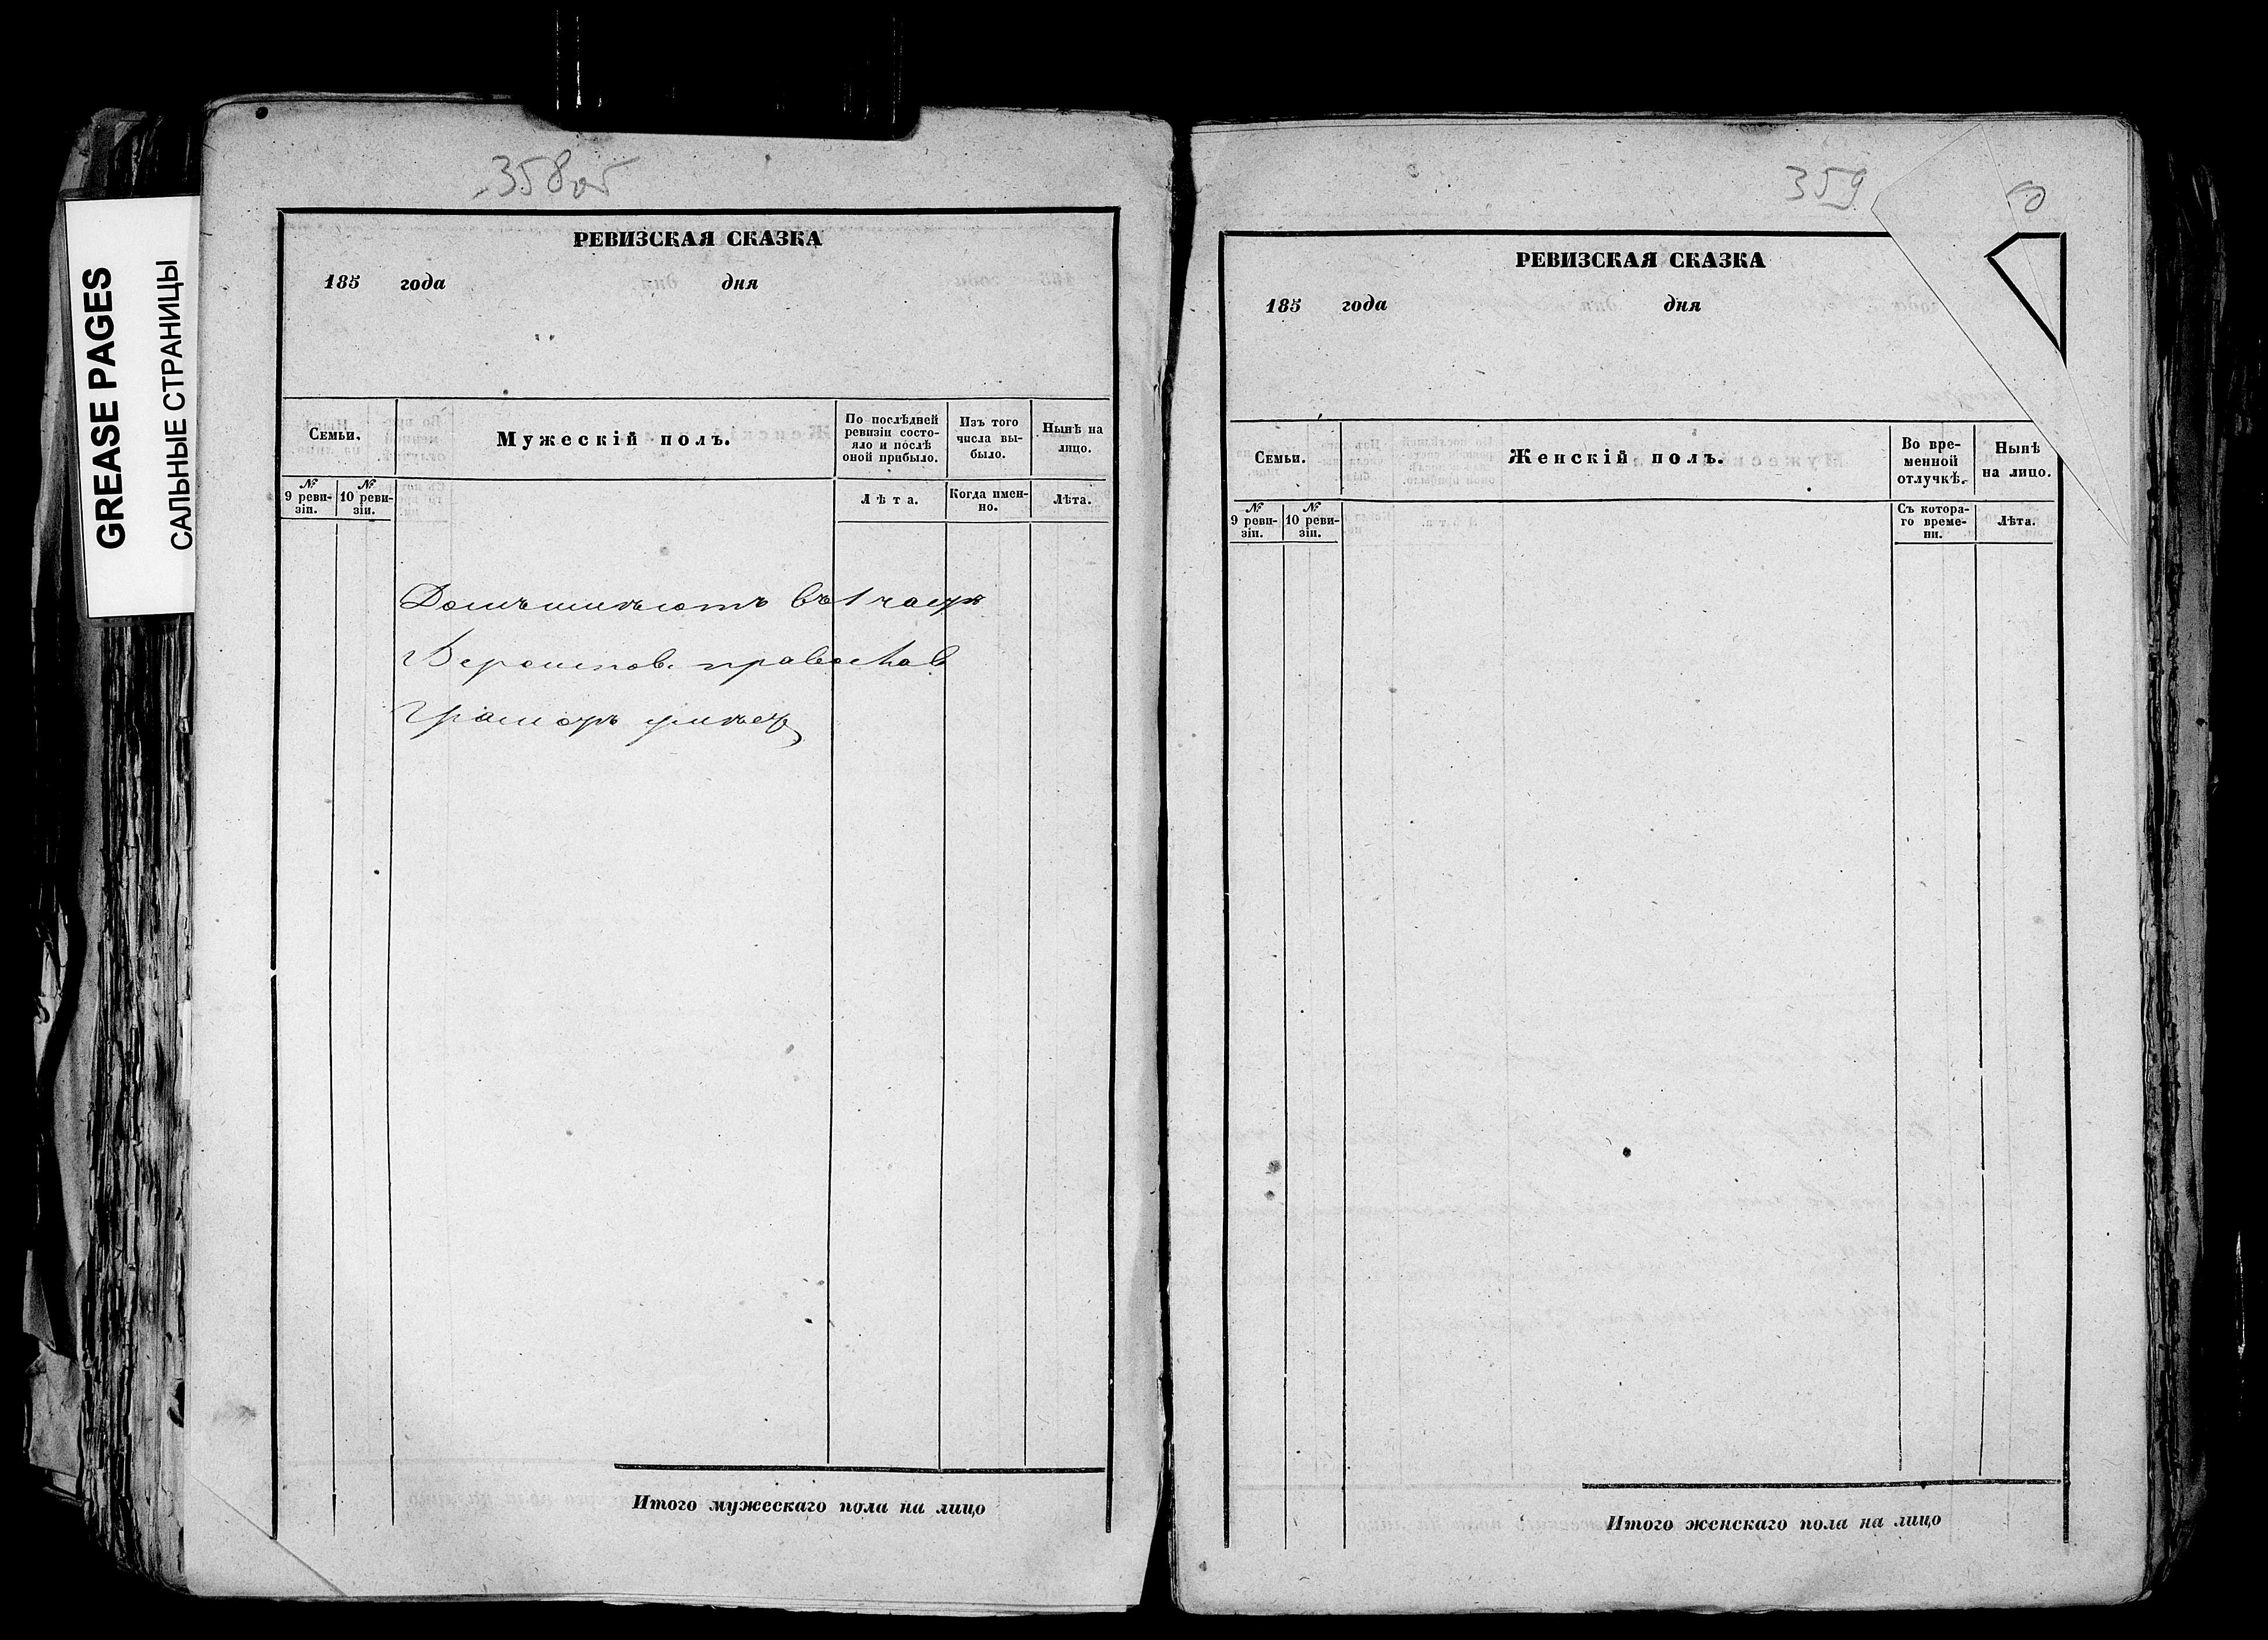 GREASE PAGES
САЛЬНЫЕ СТРАНИЦЫ
358об
РЕВИЗСКАЯ СКАЗКА
185 года дня
Семьи.
Мужескій полъ.
По послѣдней ревизіи состояло и послѣ оной прибыло.
Изъ того числа выбыло.
Нынѣ на лицо.
№ 9 ревизіи.
№ 10 ревизіи.
Лѣта.
Когда именно.
Лѣта.
Домъ имѣютъ въ 1 части
Вероиспов. православ
Грамотѣ умѣет
Итого мужескаго пола на лицо
359
РЕВИЗСКАЯ СКАЗКА
185 года дня
Семьи.
Женскій полъ.
Во временной отлучкѣ.
Нынѣ на лицо.
№ 9 ревизіи.
№ 10 ревизіи.
Съ котораго времени.
Лѣта.
Итого женскаго пола на лицо